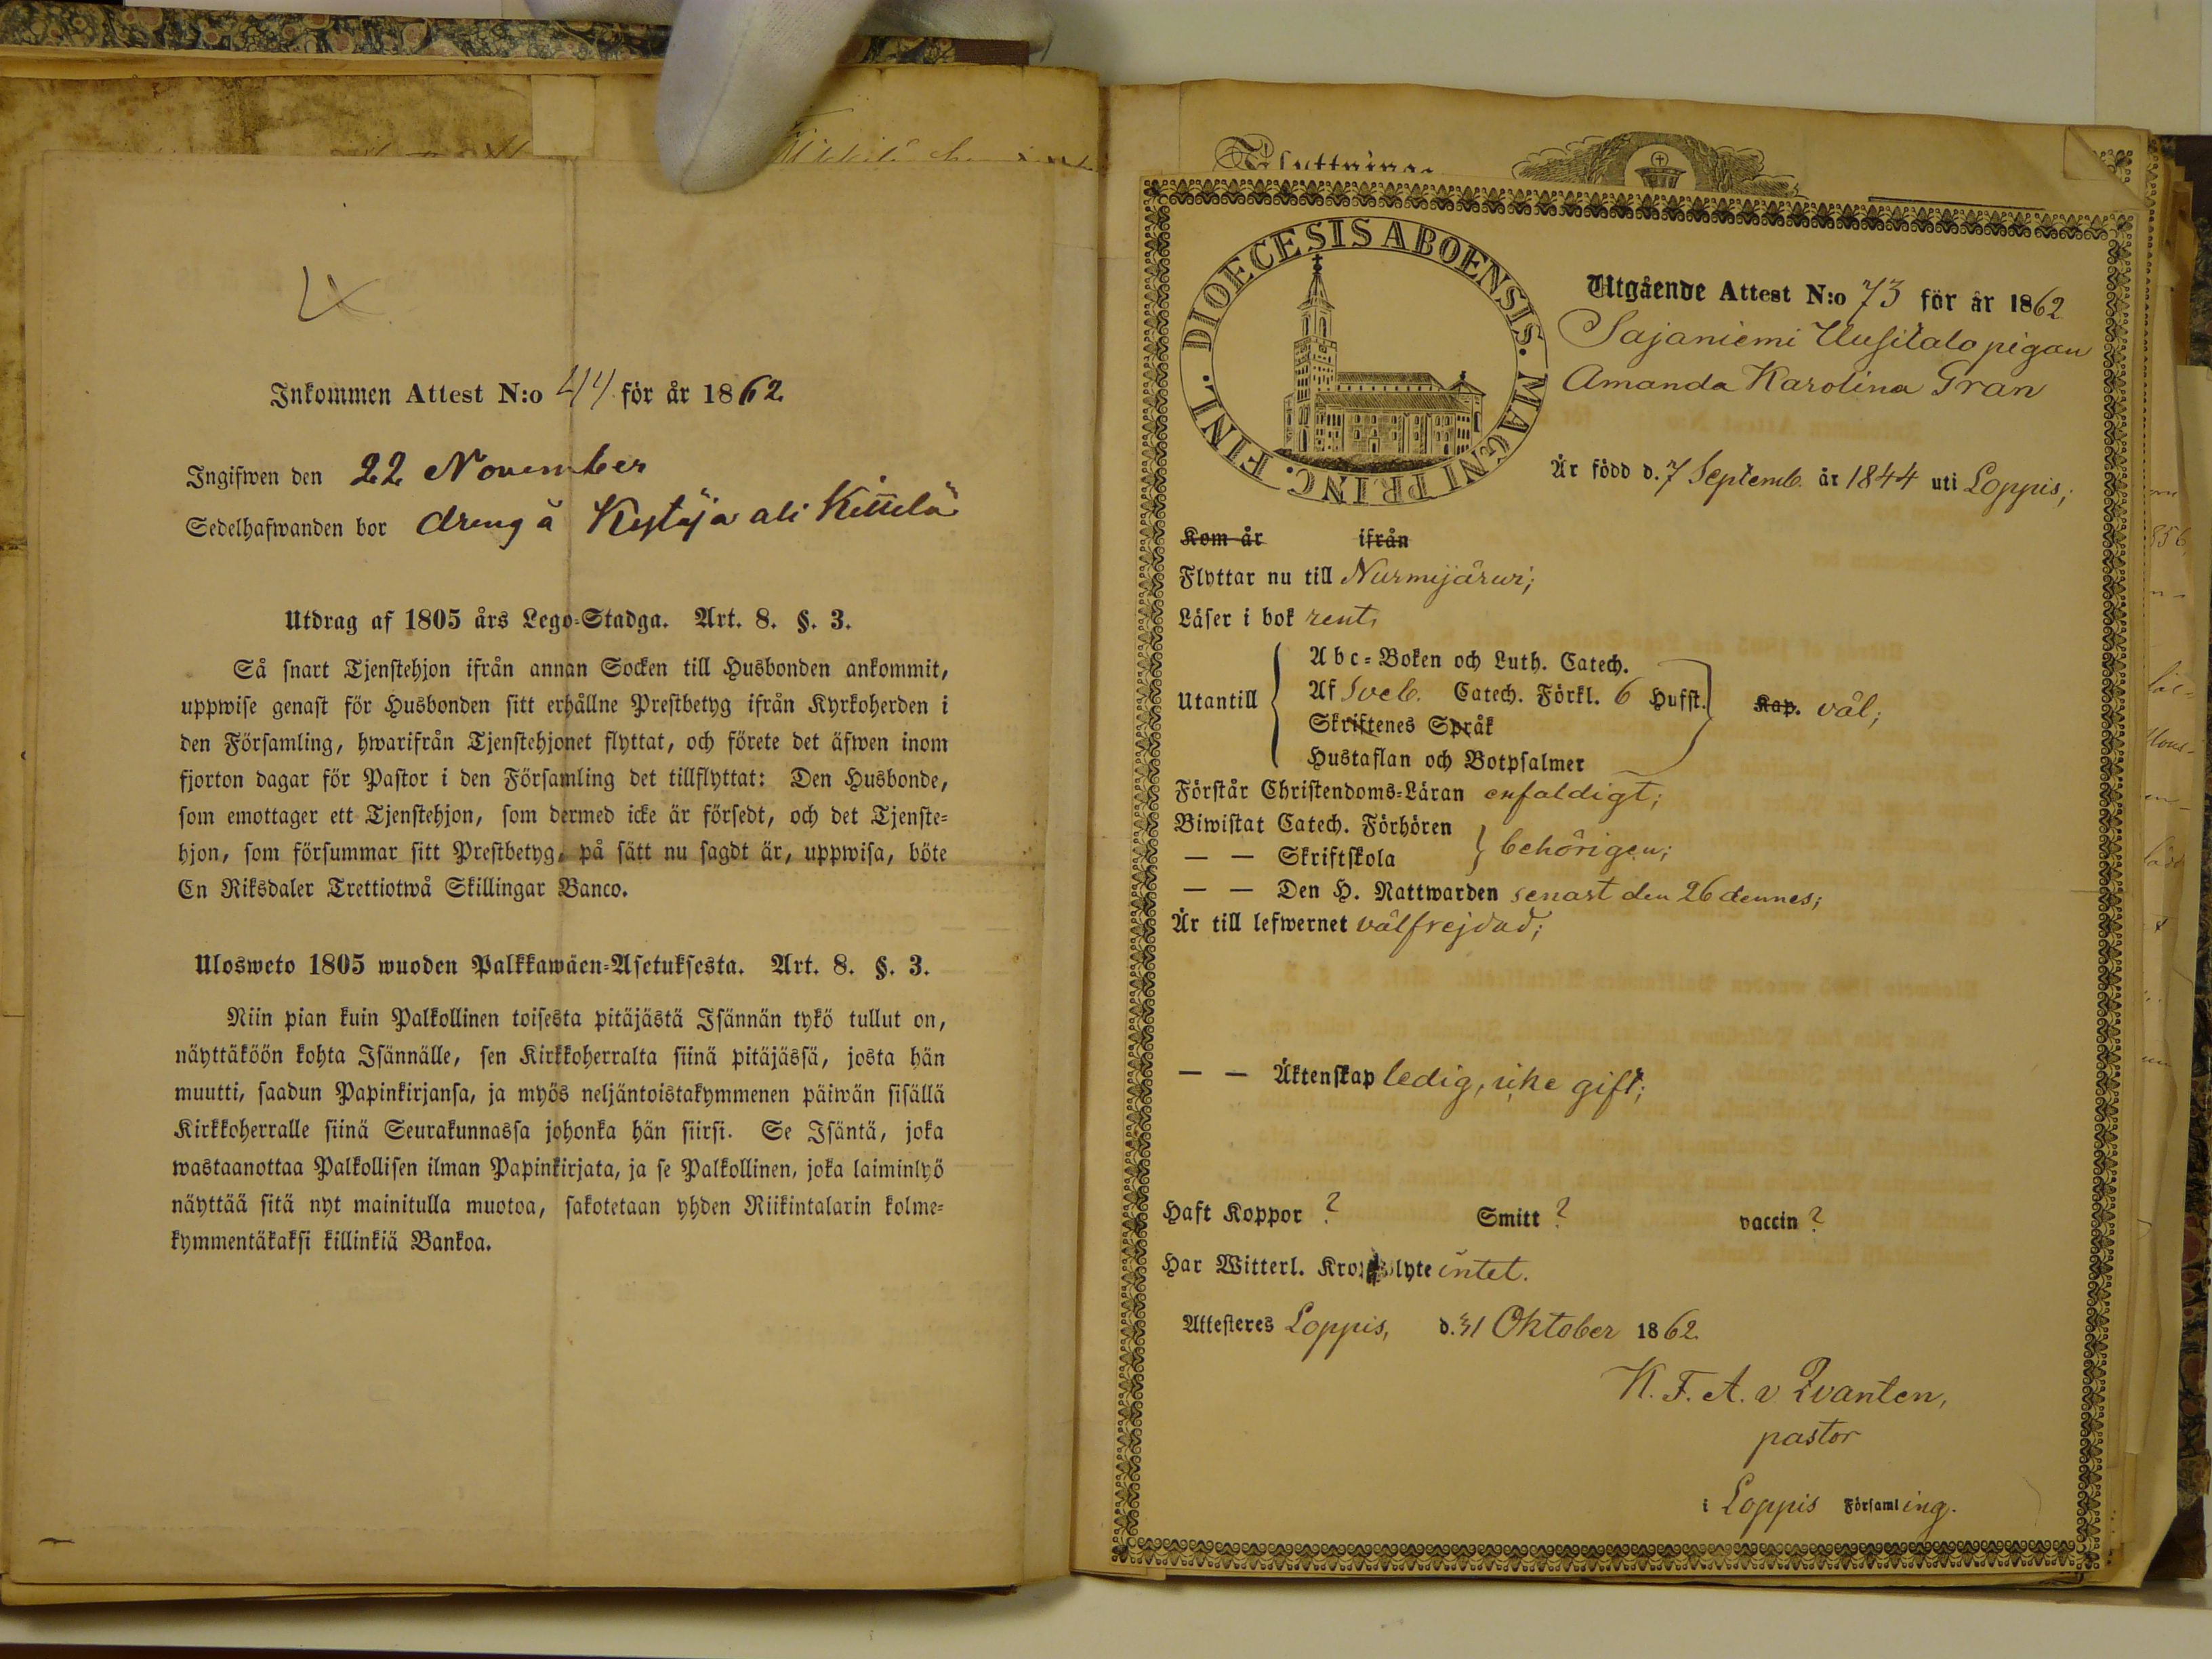 Inkommen Attest N:o 44 för år 1862.
Ingifwen den 22 November
Sedelhafwanden bor dreng å Kytäjä ali Kittilä
Utdrag af 1805 års Lego-Stadga. Art. 8. §. 3.
Så snart Tjenstehjon ifrån annan Socken till Husbonden ankommit,
uppwise genast för Husbonden sitt erhållne Prestbetyg ifrån Kyrkoherden i
den Församling, hwarifrån Tjenstehjonet flyttat, och förete det äfwen inom
fjorton dagar för Pastor i den Församling det tillflyttat: Den Husbonde,
som emottager ett Tjenstehjon, som dermed icke är försedt, och det Tjenste-
hjon, som försummar sitt Prestbetyg, på sätt nu sagdt är, uppwisa, böte
En Riksdaler Trettiotwå Skillingar Banco.
Ulosweto 1805 wuoden Palkkawäen-Asetuksesta. Art. 8. §. 3.
Niin pian kuin Palkollinen toisesta pitäjästä Isännän tykö tullut on,
näyttäköön kohta Isännälle, sen Kirkkoherralta siinä pitäjässä, josta hän
muutti, saadun Papinkirjansa, ja myös neljäntoistakymmenen päiwän sisällä
Kirkkoherralle siinä Seurakunnassa johonka hän siirsi. Se Isäntä, joka
wastaanottaa Palkollisen ilman Papinkirjata, ja se Palkollinen, joka laiminlyö
näyttää sitä nyt mainitulla muotoa, sakotetaan yhden Riikintalarin kolme-
kymmentäkaksi killinkiä Bankoa.
Flyttnings
DIOECESIS ABOENSIS. MAGNI PRINC. FINL.
Utgående Attest N:o 73 för år 1862
Sajaniemi Uusitalo pigan
Amanda Karolina Gran
Är född d. 7 Septemb. år 1844 uti Loppis;
Kom år ifrån
Flyttar nu till Nurmijärwi;
Läser i bok rent,
Utantill
Abc-Boken och Luth. Catech.
Af Sveb. Catech. Förkl. 6 Hufst.
Skriftenes Språk
Hustaflan och Botpsalmer
Kap. väl;
Förstår Christendoms-Läran enfaldigt;
Biwistat Catech. Förhören
— — Skriftskola
behörigen;
— — Den H. Nattwarden senast den 26 dennes;
Är till lefwernet välfrejdad;
— — Äktenskap ledig, icke gift;
Haft Koppor ? Smitt ? vaccin ?
Har Witterl. Kroppslyte intet.
Attesteres Loppis, d. 31 Oktober 1862.
K. F. A. v Qvanten,
pastor
i Loppis Församling.